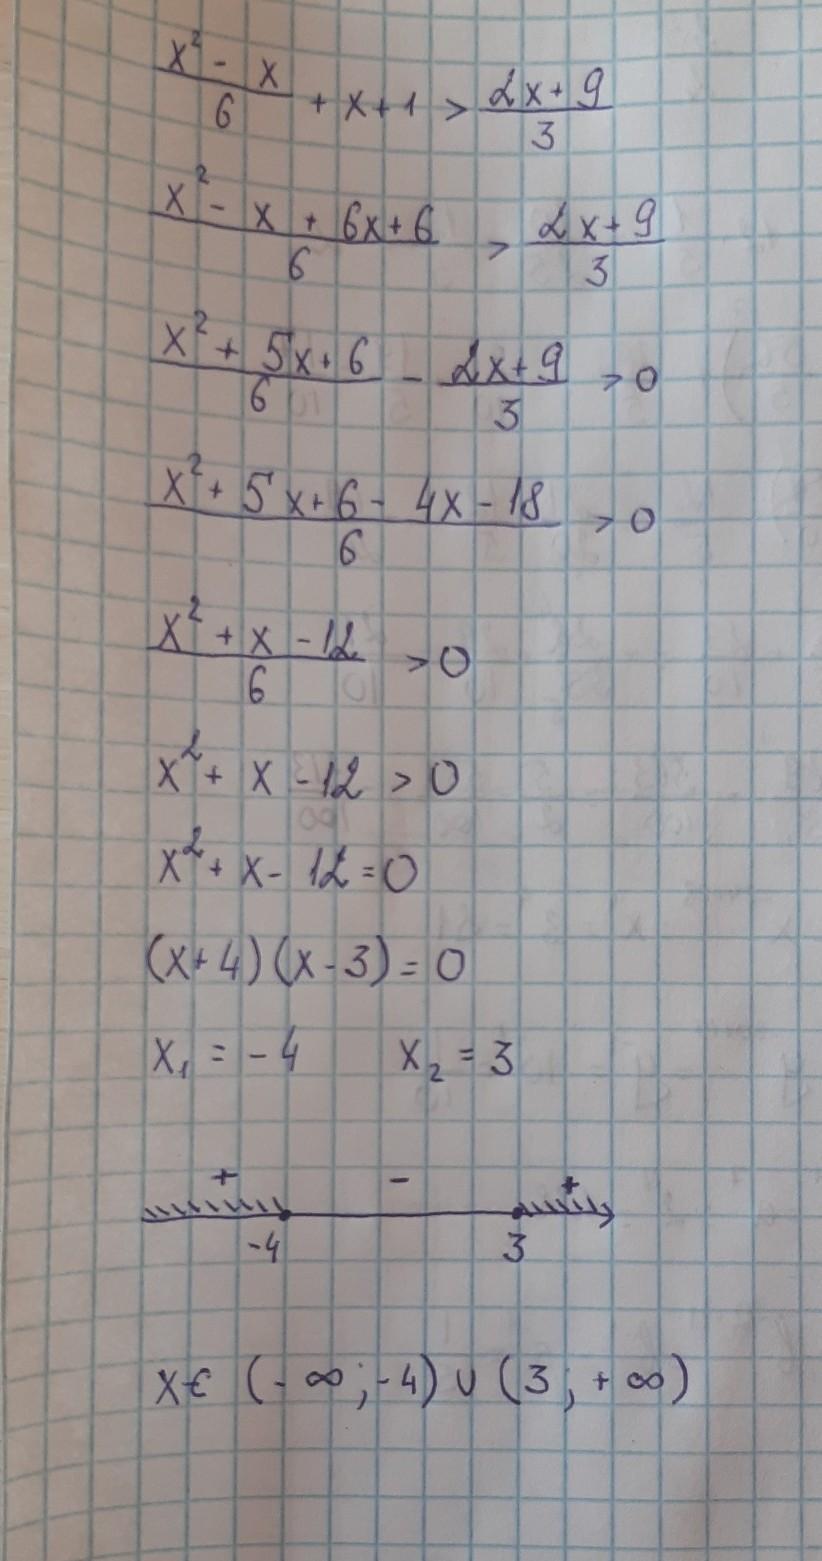 (x² - x)/6 + x + 1 > (2x + 9)/3
(x² - x + 6x + 6)/6 > (2x + 9)/3
(x² + 5x + 6)/6 - (2x + 9)/3 > 0
(x² + 5x + 6 - 4x - 18)/6 > 0
(x² + x - 12)/6 > 0
x² + x - 12 > 0
x² + x - 12 = 0
(x + 4)(x - 3) = 0
x₁ = -4 x₂ = 3
+ - +
-4 3
x ∈ (-∞; -4) ∪ (3; +∞)